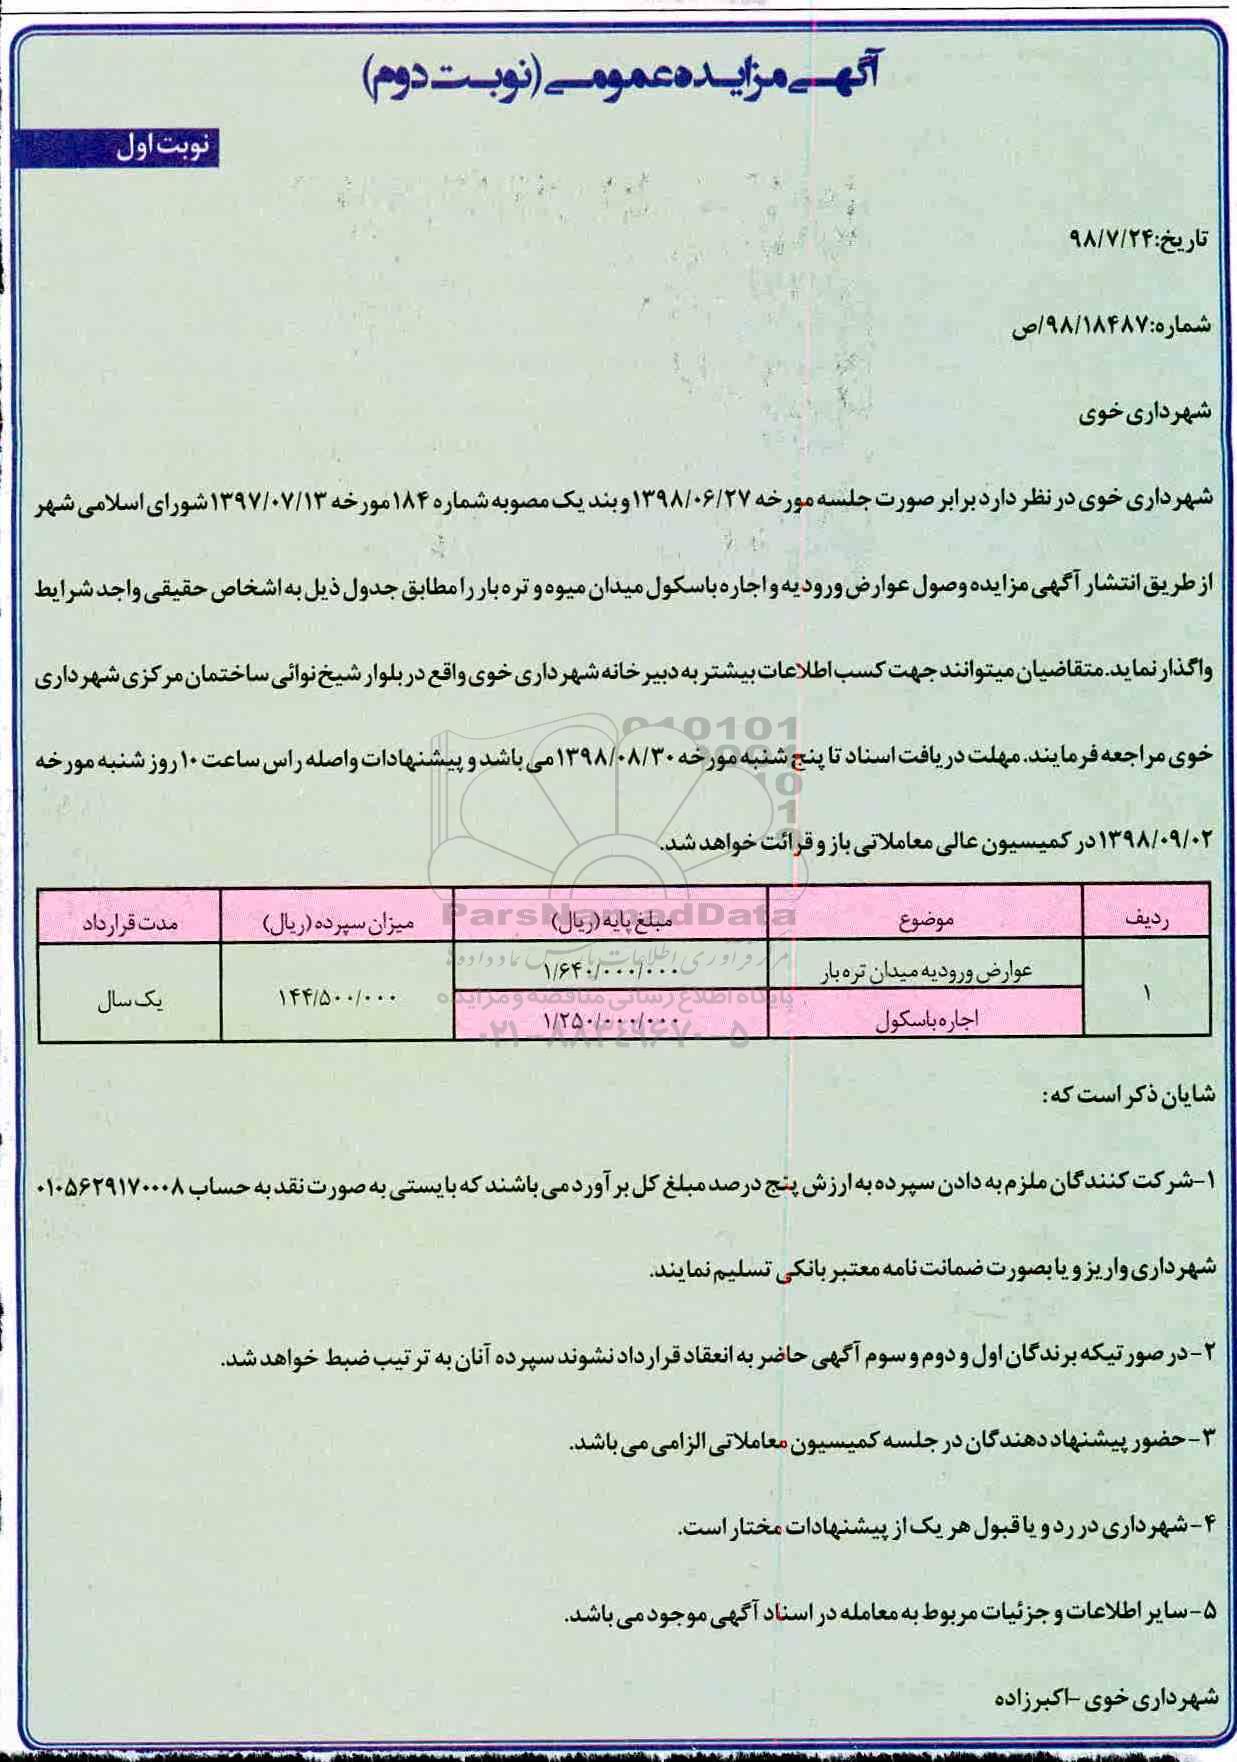 آگهی مزایده عمومی (نوبت دوم)
نوبت اول
تاریخ: ۹۸/۷/۲۴
شماره: ۹۸/۱۸۴۸۷/ص
شهرداری خوی
شهرداری خوی در نظر دارد برابر صورت جلسه مورخه ۱۳۹۸/۰۶/۲۷ و بند یک مصوبه شماره ۱۸۴ مورخه ۱۳۹۷/۰۷/۱۳ شورای اسلامی شهر
از طریق انتشار آگهی مزایده وصول عوارض ورودیه و اجاره باسکول میدان میوه و تره بار را مطابق جدول ذیل به اشخاص حقیقی واجد شرایط
واگذار نماید. متقاضیان میتوانند جهت کسب اطلاعات بیشتر به دبیر خانه شهرداری خوی واقع در بلوار شیخ نوائی ساختمان مرکزی شهرداری
خوی مراجعه فرمایند. مهلت دریافت اسناد تا پنج شنبه مورخه ۱۳۹۸/۰۸/۳۰ می باشد و پیشنهادات واصله راس ساعت ۱۰ روز شنبه مورخه
۱۳۹۸/۰۹/۰۲ در کمیسیون عالی معاملاتی باز و قرائت خواهد شد.
ردیف موضوع مبلغ پایه (ریال) میزان سپرده (ریال) مدت قرارداد
۱ عوارض ورودیه میدان تره بار ۱/۶۴۰/۰۰۰/۰۰۰ ۱۴۴/۵۰۰/۰۰۰ یک سال
اجاره باسکول ۱/۲۵۰/۰۰۰/۰۰۰
شایان ذکر است که:
۱- شرکت کنندگان ملزم به دادن سپرده به ارزش پنج درصد مبلغ کل بر آورد می باشند که بایستی به صورت نقد به حساب ۰۱۰۵۶۲۹۱۷۰۰۰۸
شهرداری واریز و یا بصورت ضمانت نامه معتبر بانکی تسلیم نمایند.
۲- در صورتیکه برندگان اول و دوم و سوم آگهی حاضر به انعقاد قرارداد نشوند سپرده آنان به ترتیب ضبط خواهد شد.
۳- حضور پیشنهاد دهندگان در جلسه کمیسیون معاملاتی الزامی می باشد.
۴- شهرداری در رد و یا قبول هر یک از پیشنهادات مختار است.
۵- سایر اطلاعات و جزئیات مربوط به معامله در اسناد آگهی موجود می باشد.
شهرداری خوی - اکبرزاده
ParsNamadData
پایگاه اطلاع رسانی مناقصه و مزایده